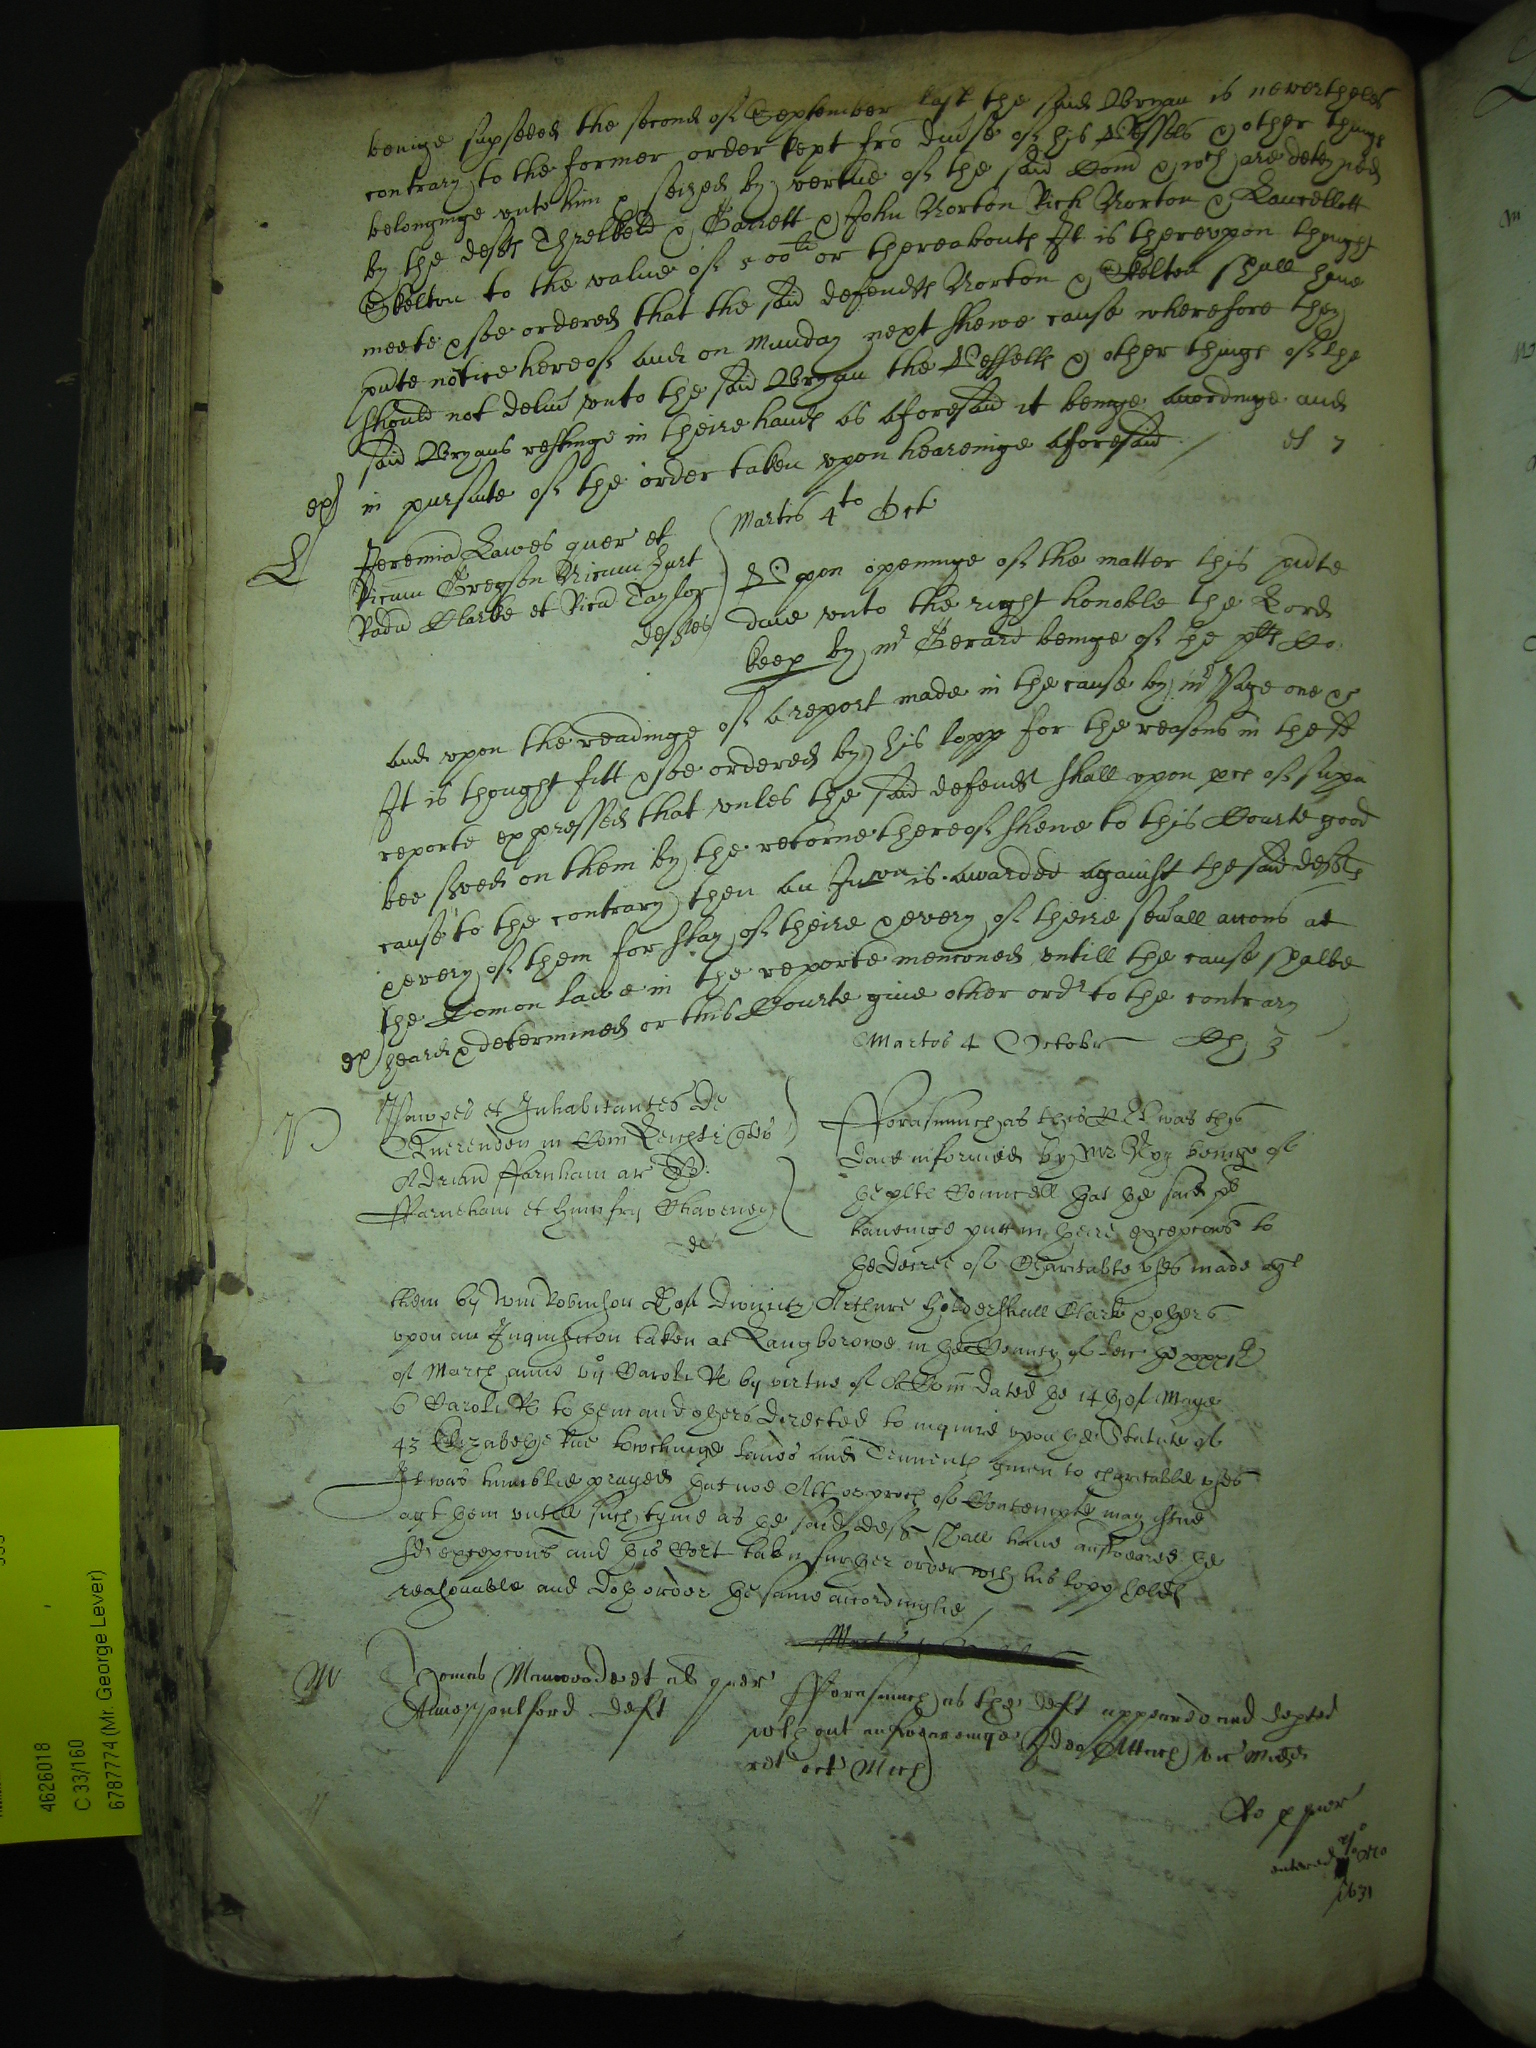 beinge supseded the second of September last the said Bryan is neverthelesse
contrary to the former order kept fro divse of his Vessels & other things
belonginge unto him & seized by vertue of the said Com & wch are deteyned
by the defts Threlkeld & Garrett & John Norton Rich Norton & Lancellott
Skelton to the value of 500li or thereabouts It is thereupon thought
meete & soe ordered that the said defendts Norton & Skelton shall have
pnte notice hereof and on Munday next shewe cause wherefore they
should not delivr unto the said Bryan the Vessells & other things of the
said Bryans restinge in theire hands as aforesaid it beinge accordinge and
in pursuite of the order taken upon hearinge aforesaid
Martis 4to Oct
Jeremia Lawes quer et
Ricum Gregson Nicum Hurt
Radu Clarke et Ricu Taylor
deftes
Upon openinge of the matter this pnte
daie unto the right honoble the Lord
keep by mr Gerard beinge of the plts Co
and upon the readinge of a report made in the cause by mr Page one &c
It is thought fitt & soe ordered by his lopp for the reasons in the sd
reporte expressed that unles the said defendts shall upon pces of supa
bee served on them by the retorne thereof shewe to this Courte good
cause to the contrary then an Iniuncon is awarded against the said defts
& every of them for stay of theire & every of theire severall accons at
the Comon lawe in the reporte menconed untill the cause shalbe
heard & determined or this Courte give other ordr to the contrary
Martis 4 Octobr
et Inhabitantes de
Querendon in Com Leicestr quer
Adrian Farnham ar
Farneham et Humfry Chaveney
Forasmuch as this Court was this
daie informed by Mr Noy beinge of
the plts Councell that the said pts
haveinge putt in theire excepcons to
the decree of Charitable uses made agt
them by Wm Robinson Dcr of Divinity Arthure Hildersham Clark & others
upon an Inquisicon taken at Laughborowe in the County of Leic the
of March anno vij Caroli R by virtue of a Com dated the 14th of Maye
6 Caroli R to them and others directed to inquire upon the Statute of
43 Elizabethe Rne towchinge lands and Tenemts given to charitable uses
It was humblie prayed that noe Att or proces of Contempte may issue
agt them untill such tyme as the said defts shall have answeared the
sd excepcons and this Cort taken further order wch his lopp holds
reasonable and doth order the same accordinglie
Thomas Manwoode et al quer
deft
Forasmuch as the deft appeared and depted
without answearinge Ideo Attach vic Midd
ret oct Mich
Ro p quer
entered
1631
4626018
C 33/160
6787774 (Mr. George Lever)